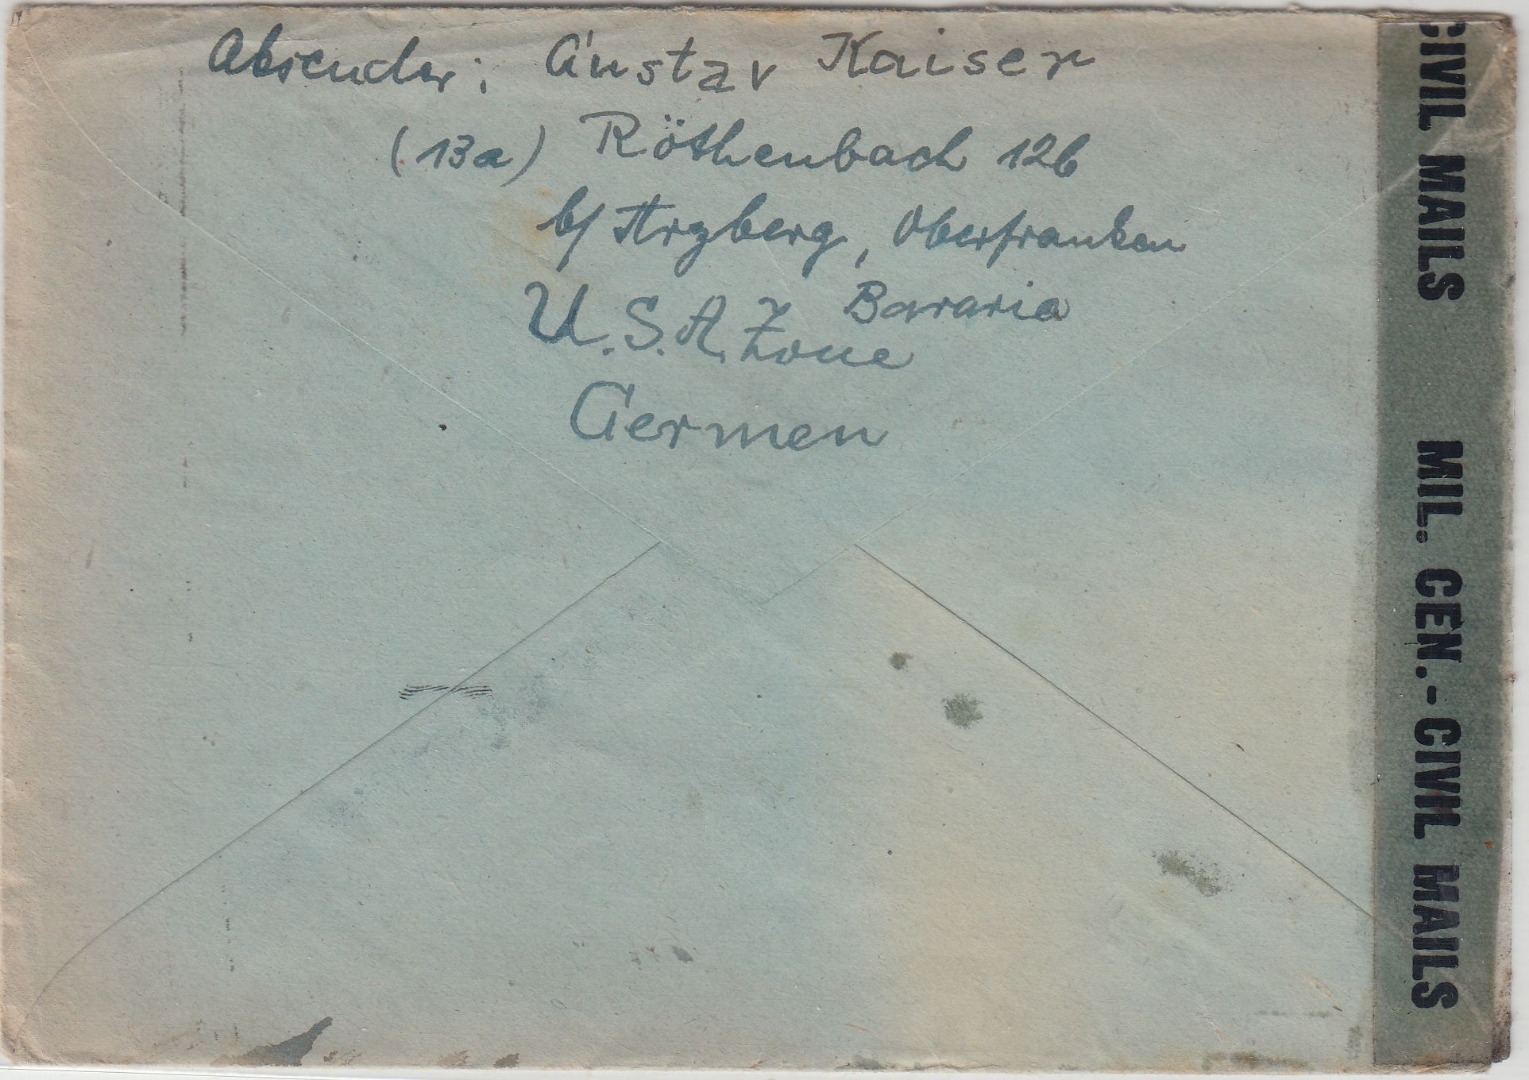 Absender: Gustav Kaiser
(13a) Röthenbach 126
b/ Arzberg, Oberfranken
Bavaria
U.S.A. Zone
Germen
CIVIL MAILS
MIL. CEN.-CIVIL MAILS